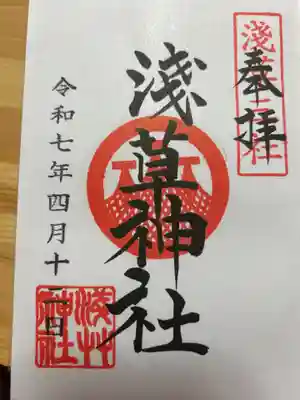 奉拝
淺草神社
令和七年四月十二日
淺草
神社